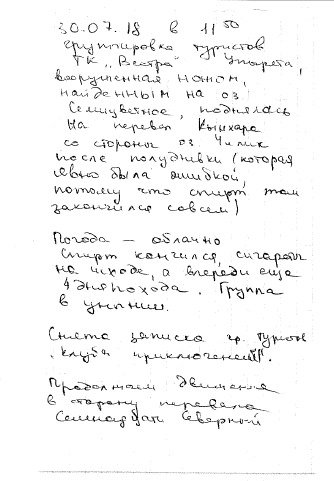 30.07.18 в 11 50
группировка туристов
ТК „Вестра"
вооруженная ножом,
найденным на оз
Семицветное, поднялась
на перевал Кынхара
со стороны оз Чилик
после полудневки (которая
явно была ошибкой,
потому что спирт там
закончился совсем)
Погода — облачно
Спирт кончился, сигареты
на исходе, а впереди еще
4 дня похода. Группа
в унынии.
Снята записка гр. туристов
клуба приключений.
Продолжаем движение
в сторону перевала
Семнадцати Северный